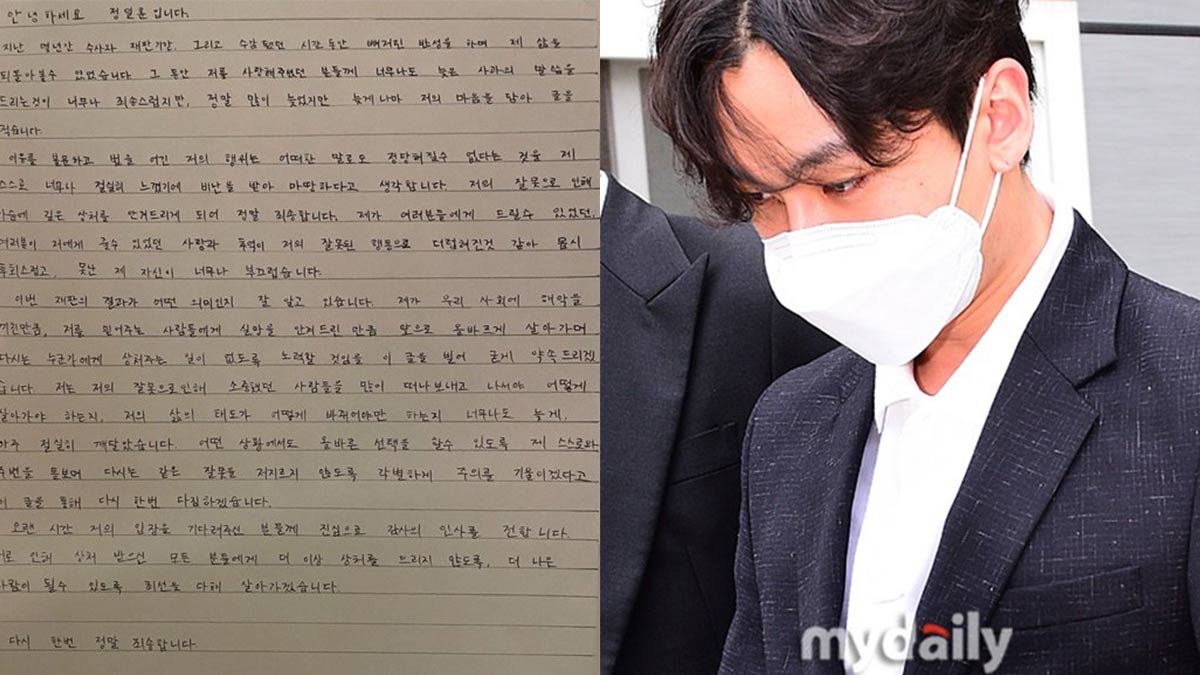 안녕하세요 정일훈입니다.
지난 몇년간 수사와 재판기간, 그리고 수감됐던 시간동안 뼈저린 반성을 하며 제 삶을
되돌아볼수 있었습니다. 그 동안 저를 사랑해주셨던 분들께 너무나도 늦은 사과의 말씀을
드리는것이 너무나 죄송스럽지만, 정말 많이 늦었지만 늦게나마 저의 마음을 담아 글을
적습니다.
이유를 불문하고 법을 어긴 저의 행위는 어떠한 말로도 정당해질수 없다는 것을 제
스스로 너무나 절실히 느꼈기에 비난을 받아 마땅하다고 생각합니다. 저의 잘못으로 인해
가슴에 깊은 상처를 안겨드리게 되어 정말 죄송합니다. 제가 여러분들에게 드릴수 있었던,
여러분이 저에게 줄수 있었던 사랑과 추억이 저의 잘못된 행동으로 더럽혀진것 같아 몹시
후회스럽고, 못난 제 자신이 너무나 부끄럽습니다.
이번 재판의 결과가 어떤 의미인지 잘 알고 있습니다. 제가 우리 사회에 해악을
끼친만큼, 저를 믿어주는 사람들에게 실망을 안겨드린 만큼 앞으로 올바르게 살아가며
다시는 누군가에게 상처주는 일이 없도록 노력할 것임을 이 글을 빌어 굳게 약속드리겠
습니다. 저는 저의 잘못으로인해 소중했던 사람들을 많이 떠나보내고 나서야 어떻게
살아가야 하는지, 저의 삶의 태도가 어떻게 바뀌어야만 하는지 너무나도 늦게,
아주 절실히 깨달았습니다. 어떤 상황에서도 올바른 선택을 할수 있도록 제 스스로와
주변을 돌보며 다시는 같은 잘못을 저지르지 않도록 각별하게 주의를 기울이겠다고
이 글을 통해 다시 한번 다짐하겠습니다.
오랜 시간 저의 입장을 기다려주신 분들께 진심으로 감사의 인사를 전합니다.
저로 인해 상처 받으신 모든 분들에게 더 이상 상처를 드리지 않도록, 더 나은
사람이 될수 있도록 최선을 다해 살아가겠습니다.
다시 한번 정말 죄송합니다.
mydaily